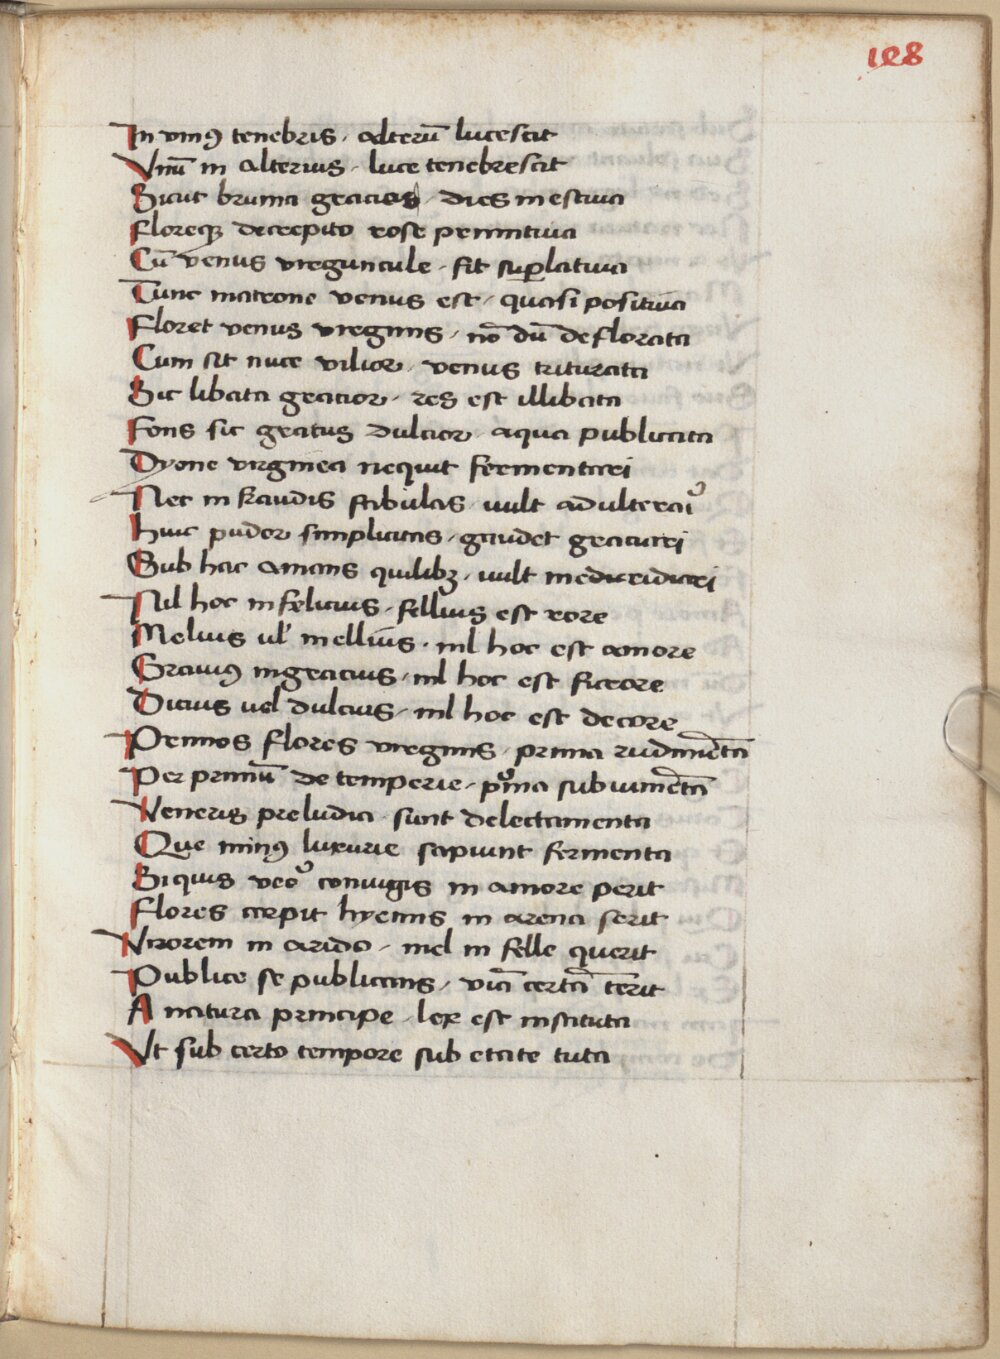 128
In vniꝰ tenebris · alterū lucescit
Vnū in alterius · luce tenebrescit
Sicut bruma gracior · dies in estiua
Floreqꝫ decrepito rose primitiua
Cū venus virguncule · fit suꝑlatiua
Tunc matrone venus est · quasi positiua
Floret venus virginis · nō dū deflorata
Cum sit nuce vilior · venus triturata
Sic libata gracior · res est illibata
Fons sic gratus dulcior aqua publicata
Dyone virginea nequit fermentari
Nec in fraudis fabulas · wult adulterari
Huic pudor simplicitas · gaudet gratari
Sub hac amans quilibꝫ · wult
Nil hoc infelicius · fellius est rore
Melius ul' mellius · nil hoc est amore
Grauiꝰ ingracius · nil hoc est
Dicius uel dulcius · nil hoc est decore
Primos flores virginis · prima rudimēta
Per primū de temperie · pͥma
Veneris preludia · sunt delectamenta
Que miniꝰ luxurie sapiunt fermenta
Siquis veͦ coniugis in amore perit
Flores carpit hyemis in arena serit
Virorem in arido · mel in felle querit
Publice se publicans · viā certā terit
A natura principe · lex est instituta
Vt sub certo tempore sub etate tuta